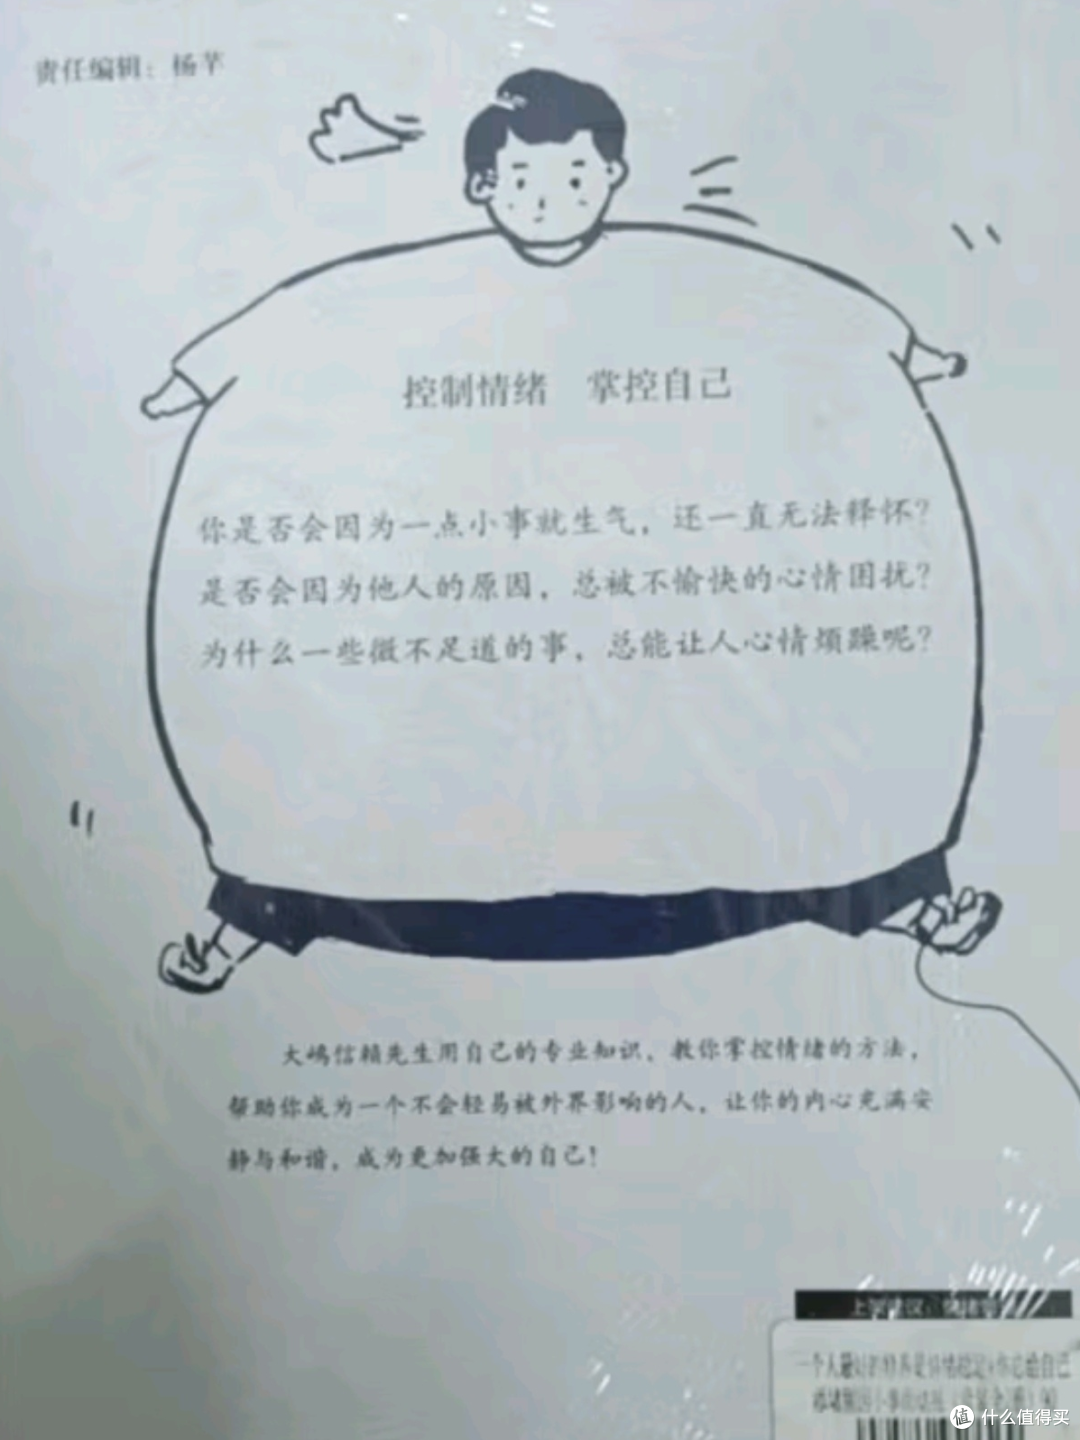 责任编辑：杨芊
控制情绪 掌控自己
你是否会因为一点小事就生气，还一直无法释怀？
是否会因为他人的原因，总被不愉快的心情困扰？
为什么一些微不足道的事，总能让人心情烦躁呢？
大嶋信赖先生用自己的专业知识，教你掌控情绪的方法，
帮助你成为一个不会轻易被外界影响的人，让你的内心充满安
静与和谐，成为更加强大的自己！
上架建议：
一个人最好的修养是情绪稳定
值 什么值得买